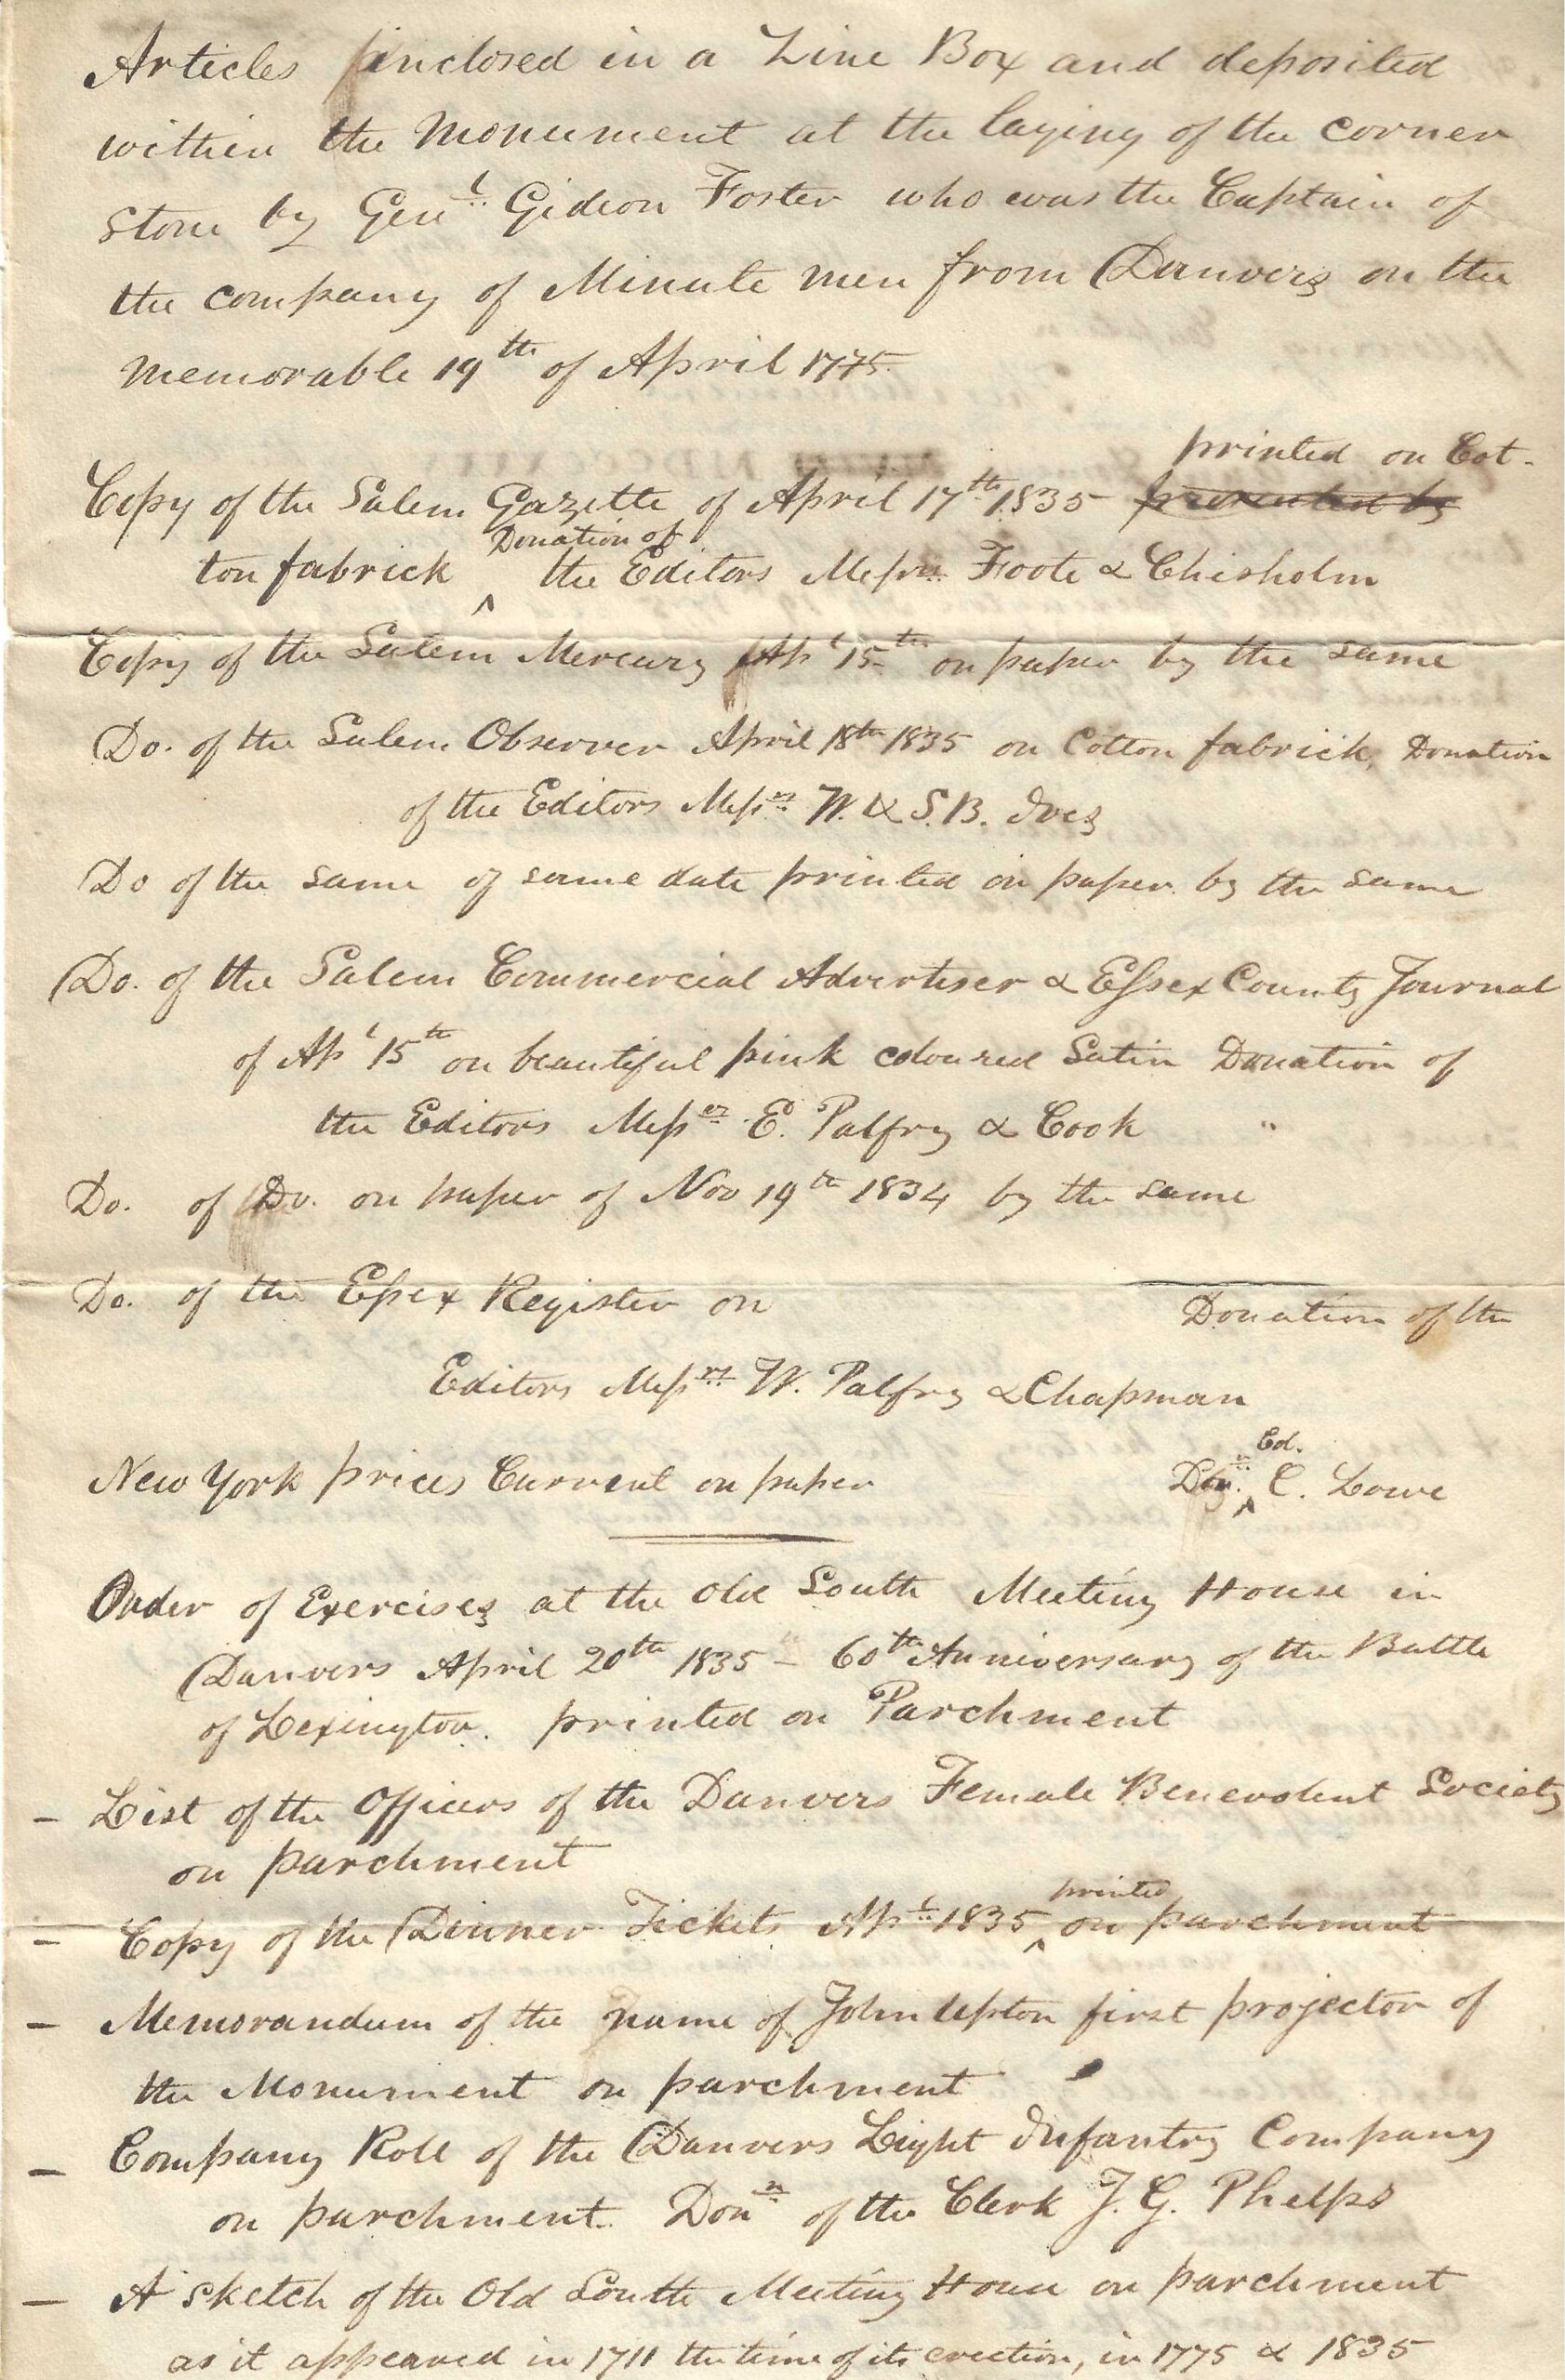 Articles inclosed in a Zinc Box and deposited
within the Monument at the laying of the corner
stone by Genl. Gideon Foster who was the Captain of
the company of Minute men from Danvers on the
memorable 19th of April 1775.
printed on Cot-
Copy of the Salem Gazette of April 17th 1835 presented by
Donation of
ton fabrick ^ the Editors Messrs. Foote & Chisholm
Copy of the Salem Mercury Apl 15th on paper by the same
Do. of the Salem Observer April 18th 1835 on Cotton fabrick, Donation
of the Editors Messrs. W. & S.B. Ives
Do of the same of same date printed on paper by the same
Do. of the Salem Commercial Advertiser & Essex County Journal
of Apl 15th on beautiful pink coloured Satin Donation of
the Editors Messrs. E. Palfry & Cook "
Do. of Do. on paper of Nov 19th 1834 by the same
Do. of the Essex Register on Donation of the
Editors Messrs. W. Palfry & Chapman
Col.
New York prices Current on paper Don. ^ C. Lowe
Order of Exercises at the Old South Meeting House in
Danvers April 20th 1835 - 60th Anniversary of the Battle
of Lexington. printed on Parchment
- List of the Officers of the Danvers Female Benevolent Society
on parchment
printed
- Copy of the Dinner Tickets Apl. 1835 ^ on parchment
- Memorandum of the name of John Upton first projector of
the Monument on parchment
- Company Roll of the Danvers Light Infantry Company
on parchment. Donn. of the Clerk J. G. Phelps
- A sketch of the Old South Meeting House on parchment
as it appeared in 1711 the time of its erection, in 1775 & 1835